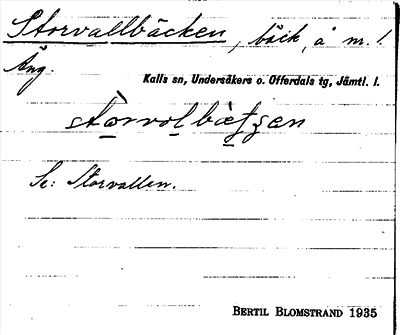 Storvallbäcken, bäck, å nr. 1.
Äng.
Kalls sn, Undersåkers o. Offerdals tg, Jämtl. l.
Se: Storvallen.
BERTIL BLOMSTRAND 1935